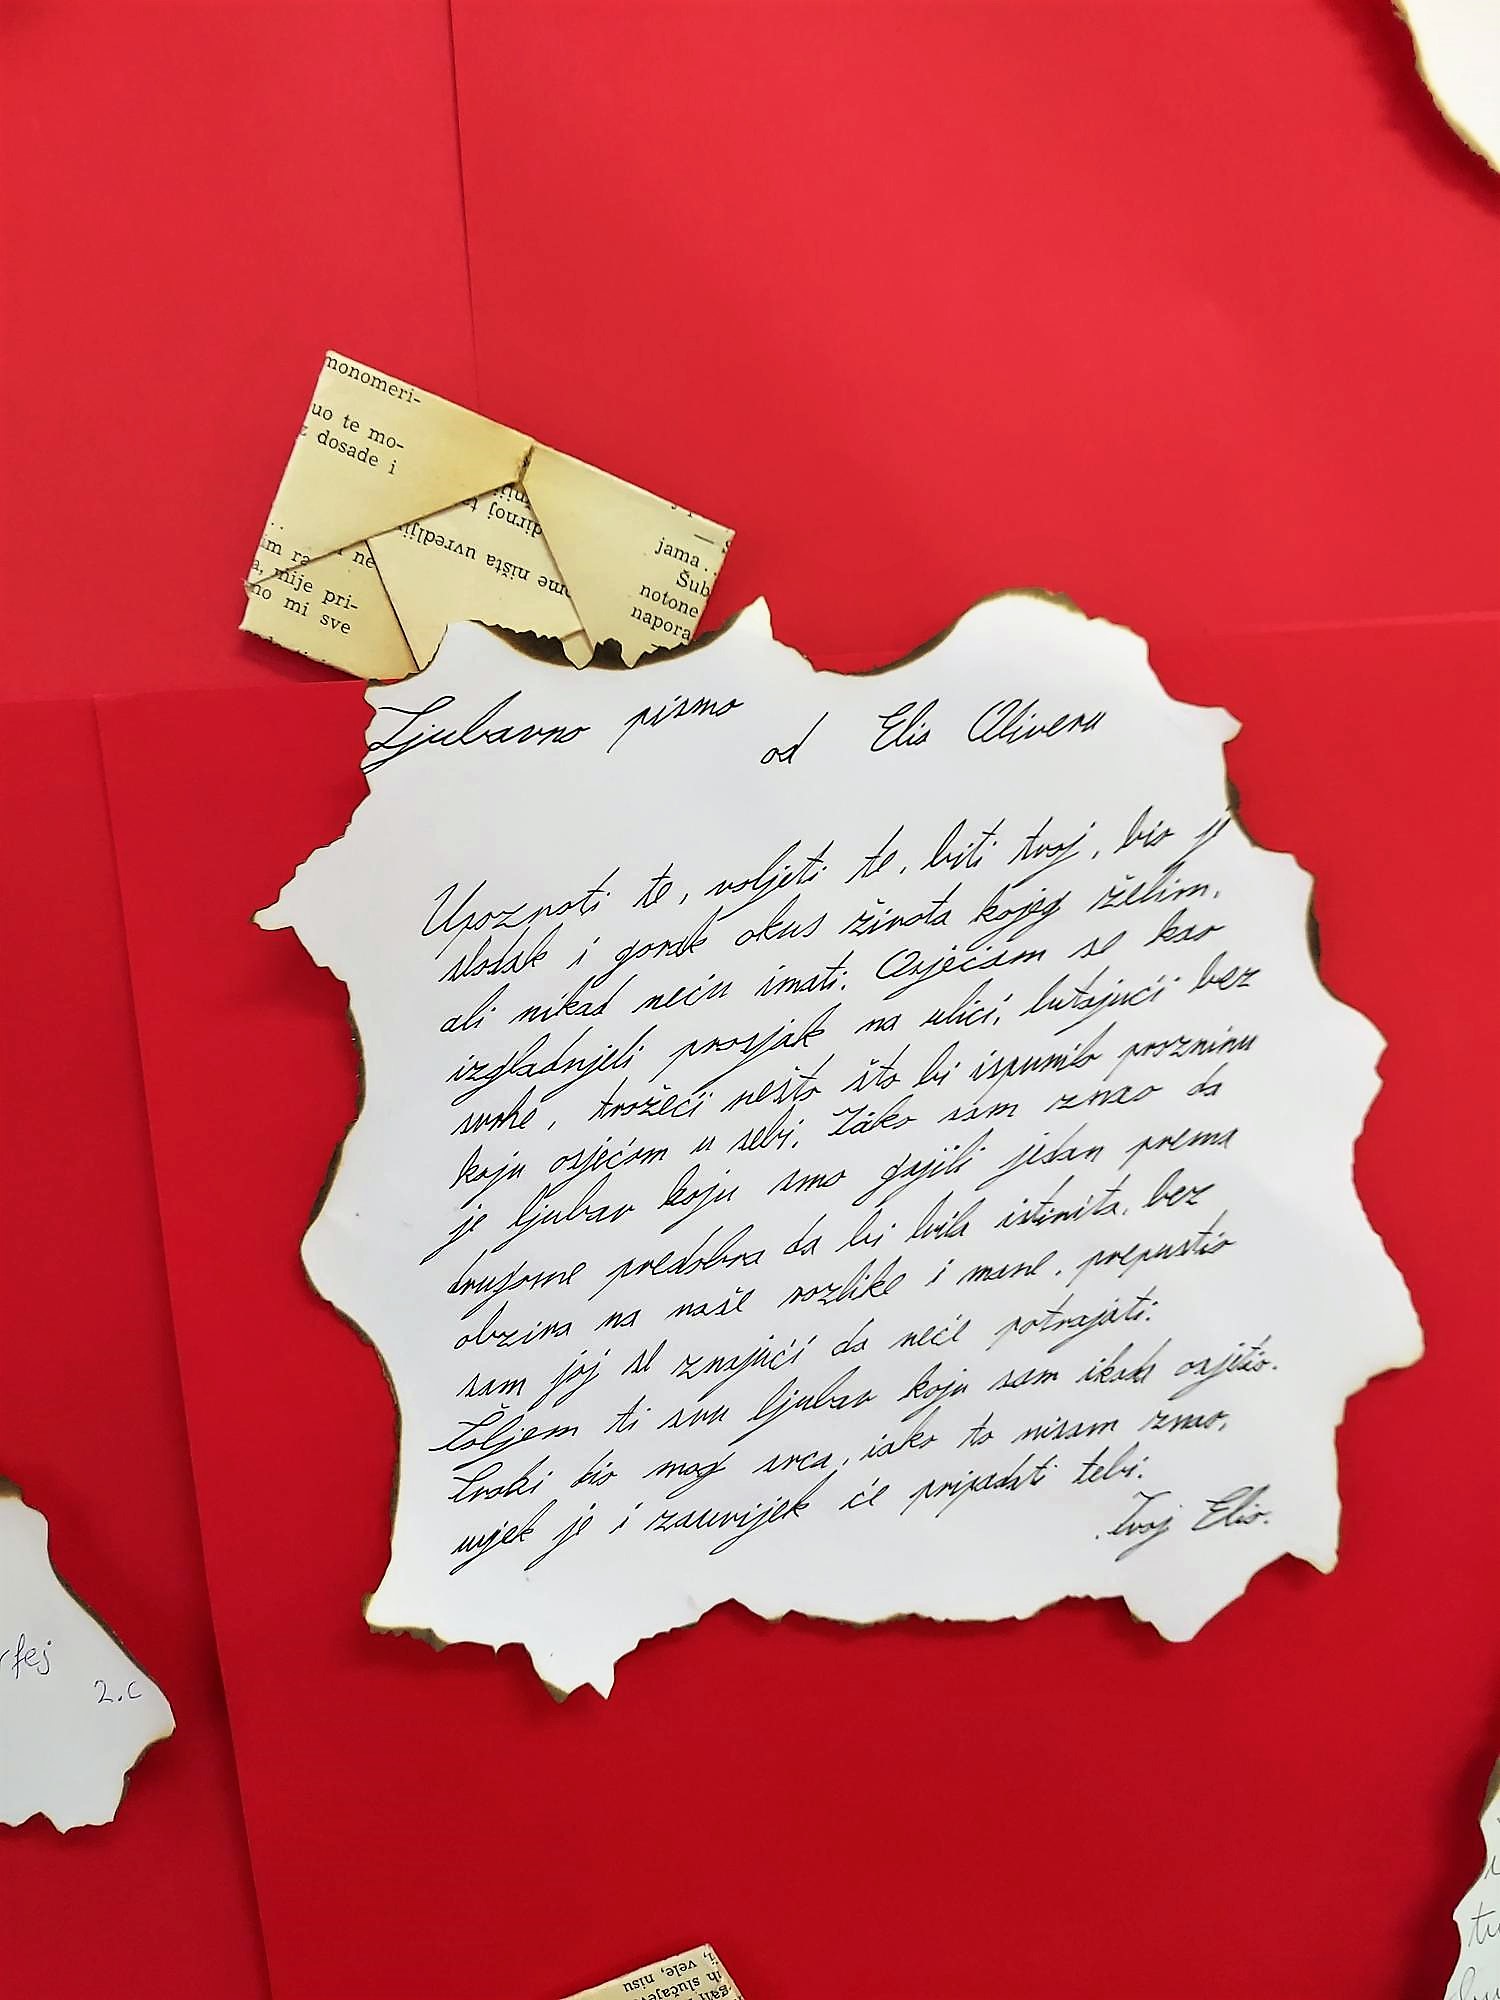 monomeri-
uo te mo-
z dosade i
ne
mije pri-
no mi sve
dirnoj
ome ništa uvredlji
jama..
Šub
notone
napora
Ljubavno pismo
od Elia Oliveru
Upoznati te, voljeti te, biti tvoj, bio je
sladak i gorak okus života kojeg želim,
ali nikad neću imati. Osjećam se kao
izgladnjeli prosjak na ulici, lutajući bez
svrhe, tražeći nešto što bi ispunilo prazninu
koju osjećam u sebi. Iako sam znao da
je ljubav koju smo gajili jedan prema
drugome predobra da bi bila istinita, bez
obzira na naše razlike i mane, prepustio
sam joj se znajući da neće potrajati.
Šaljem ti svu ljubav koju sam ikada osjetio.
Svaki dio mog srca, iako to nisam znao,
uvijek je i zauvijek će pripadati tebi.
Tvoj Elio.
rfej
2.c
vele, nisu
ih slučaje